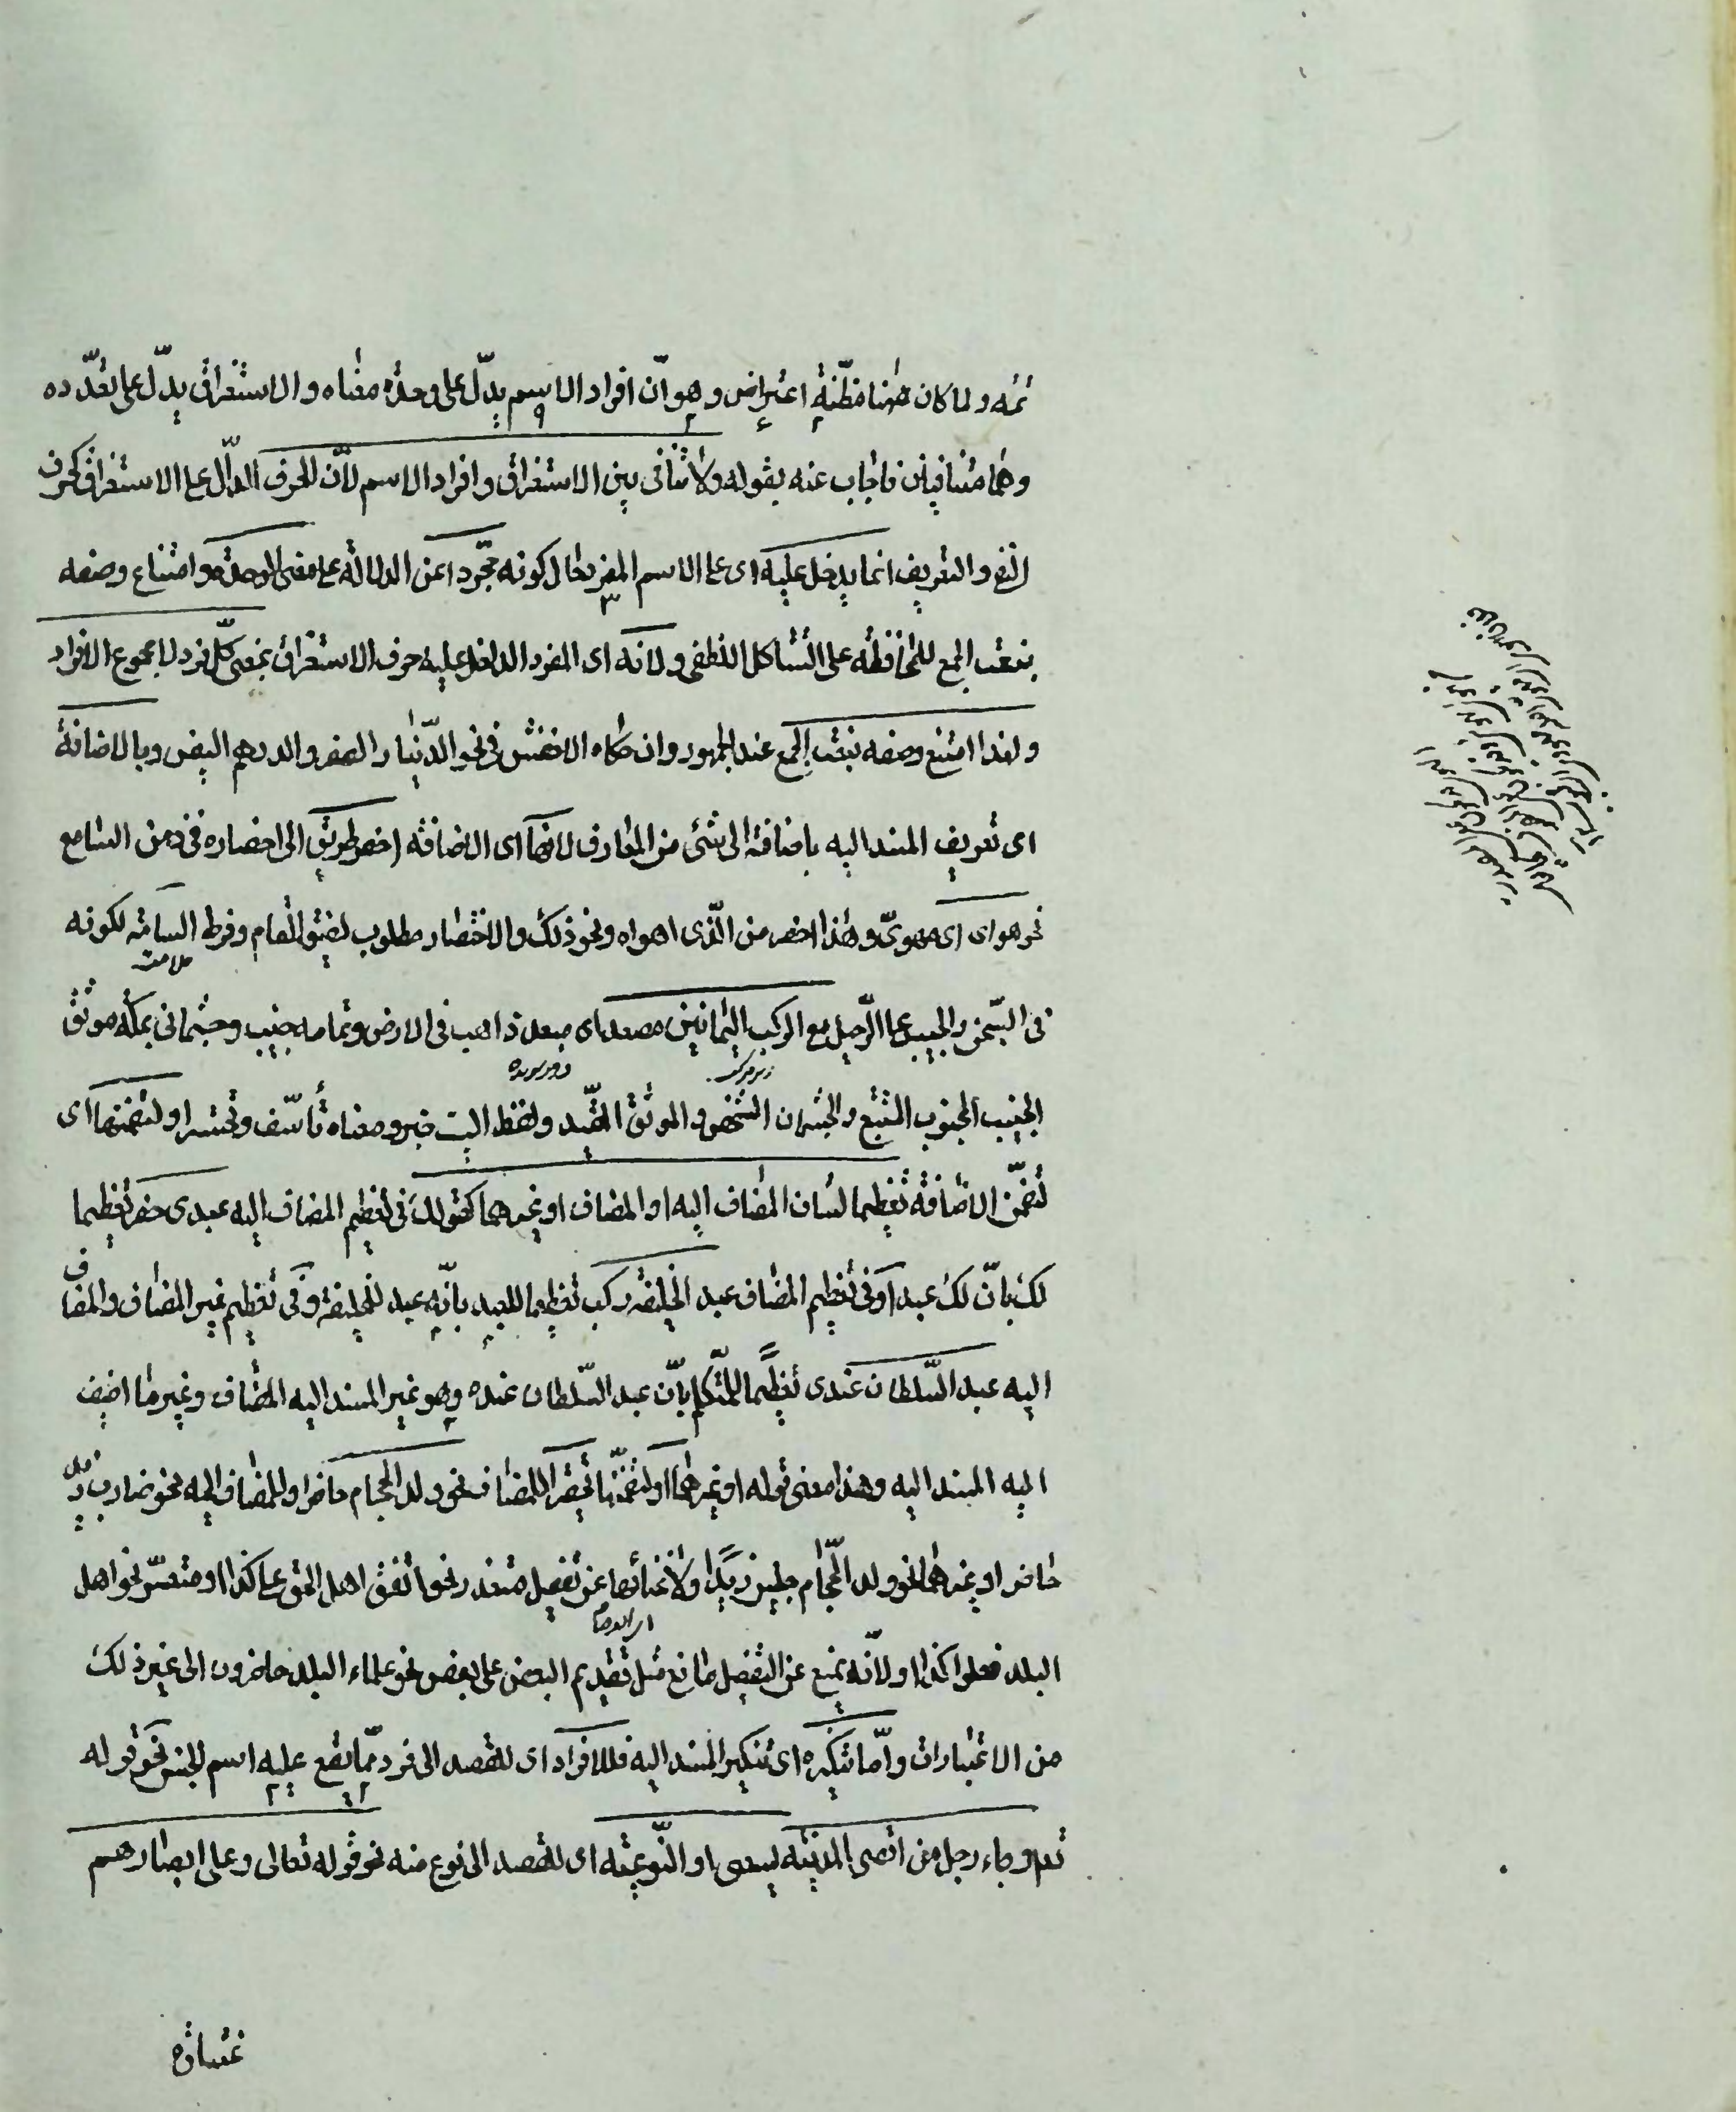 ثمه ولما كان ههنا مظنة اعتراض وهو ان افراد الاسم يدل على وحدة معناه والاستغراق يدل على تعدده
وهما متنافيان فاجاب عنه بقوله ولا تنافى بين الاستغراق وافراد الاسم لان الحرف الدال على الاستغراق كحرف
النفى والتعريف انما يدخل عليه اى على الاسم المفرد حال كونه مجردا عن الدلالة على معنى الوحدة وامتناع وصفه
بنعت الجمع للمحافظة على التشاكل اللفظى ولانه اى المفرد الداخل عليه حرف الاستغراق بمعنى كل فرد لا مجموع الافراد
ولهذا امتنع وصفه بنعت الجمع عند الجمهور وان حكاه الاخفش فى نحو الدينار الصفر والدرهم البيض وبالاضافة
اى تعريف المسند اليه باضافته الى شئ من المعارف لانها اى الاضافة اخصر طريق الى احضاره فى ذهن السامع
نحو هواى اى مهوىّ وهذا اخصر من الذى اهواه ونحو ذلك والاختصار مطلوب لضيق المقام وفرط السآمة لكونه
فى السجن والحبيب على الرحيل مع الركب اليمانين مصعد اى مبعد ذاهب فى الارض وتمامه جنيب وجثمانى بمكة موثق
الجنيب المجنوب المتتبع والجثمان الشخص والموثق المقيد ولفظ البيت خبر ومعناه تأسف وتحسر او لتضمنها اى
لتضمن الاضافة تعظيما لشان المضاف اليه او المضاف او غيرهما كقولك فى تعظيم المضاف اليه عبدى حضر تعظيما
لك بان لك عبدا وفى تعظيم المضاف عبد الخليفة ركب تعظيما للعبد بانه عبد للخليفة وفى تعظيم غير المضاف والمضاف
اليه عبد السلطان عندى تعظيما للمتكلم بان عبد السلطان عنده وهو غير المسند اليه المضاف وغير ما اضيف
اليه المسند اليه وهذا معنى قوله او غيرهما او لتضمنها تحقيرا للمضاف نحو ولد الحجام حاضر او للمضاف اليه نحو ضارب زيد
حاضر او غيرهما نحو ولد الحجام جليس زيد او لاغنائها عن تفصيل متعذر نحو اتفق اهل الحق على كذا او متعسر نحو اهل
البلد فعلوا كذا او لانه يمنع عن التفصيل مانع مثل تقديم البعض على بعض نحو علماء البلد حاضرون الى غير ذلك
من الاعتبارات واما تنكيره اى تنكير المسند اليه فللافراد اى للقصد الى فرد مما يقع عليه اسم الجنس نحو قوله
تعم وجاء رجل من اقصى المدينة يسعى او النوعية اى للقصد الى نوع منه نحو قوله تعالى وعلى ابصارهم
غشاوة